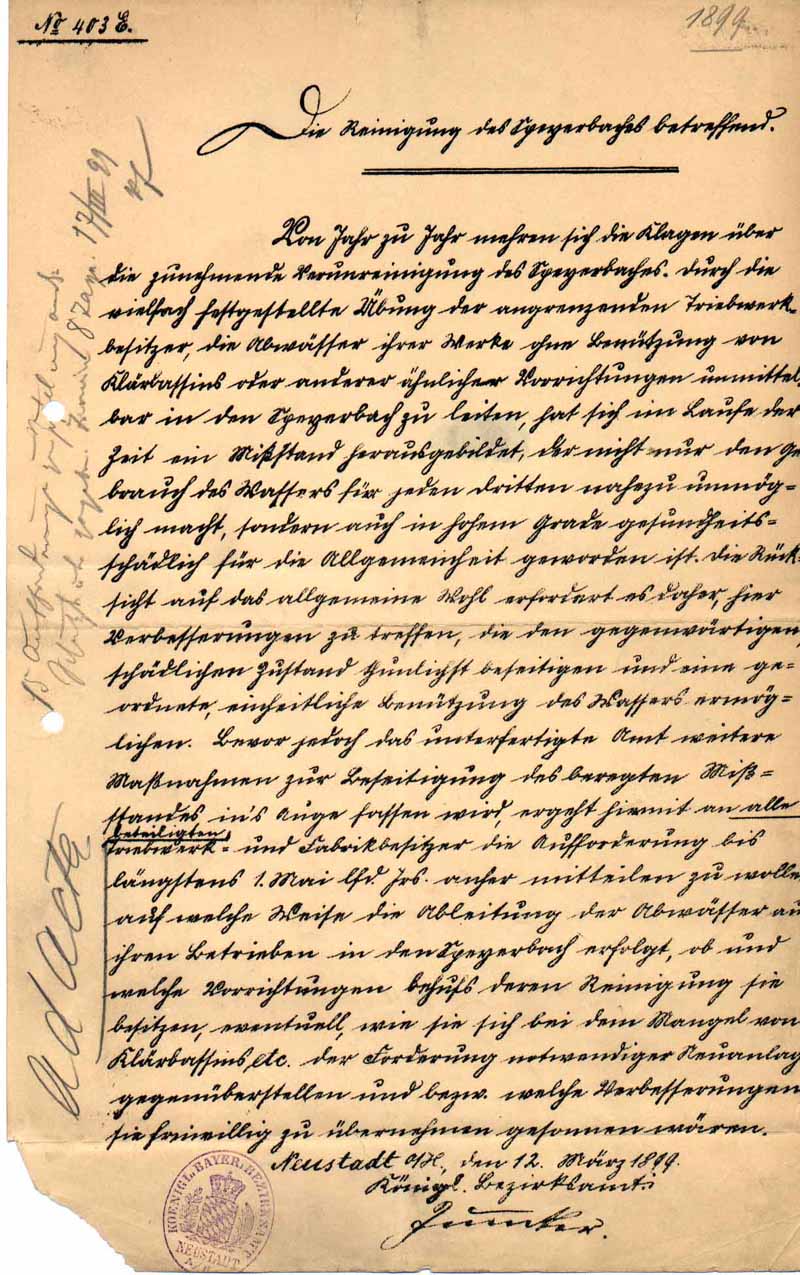 No 403 E.
1899
Die Reinigung des Speyerbaches betreffend.
Von Jahr zu Jahr mehren sich die Klagen über
die zunehmende Verunreinigung des Speyerbaches. Durch die
vielfach festgestellte Übung der angrenzenden Triebwerk-
besitzer, die Abwässer ihrer Werke ohne Benützung von
Klärbassins oder anderer ähnlicher Vorrichtungen unmittel-
bar in den Speyerbach zu leiten, hat sich im Laufe der
Zeit ein Mißstand herausgebildet, der nicht nur den Ge
brauch des Wassers für jeden dritten nahezu unmög-
lich macht, sondern auch in hohem Grade gesundheits-
schädlich für die Allgemeinheit geworden ist. Die Rück-
sicht auf das allgemeine Wohl erfordert es daher, hier
Verbesserungen zu treffen, die den gegenwärtigen,
schädlichen Zustand thunlichst beseitigen und eine ge-
ordnete, einheitliche Benützung des Wassers ermög-
lichen. Bevor jedoch das unterfertigte Amt weitere
Maßnahmen zur Beseitigung des beregten Miß-
standes in's Auge fassen wird, ergeht hiermit an alle
beteiligten
Triebwerk- und Fabrikbesitzer die Aufforderung bis
längstens 1. Mai lfd. Jrs. anher mitteilen zu wolle
auf welche Weise die Ableitung der Abwässer au
ihren Betrieben in den Speyerbach erfolgt, ob und
welche Vorrichtungen behufs deren Reinigung sie
besitzen, eventuell, wie sie sich bei dem Mangel von
Klärbassins etc. der Forderung notwendiger Neuanlag
gegenüberstellen und bezw. welche Verbesserungen
sie freiwillig zu übernehmen gesonnen wären.
Neustadt a/H., den 12. März 1899.
Königl. Bezirksamt:
KOENIGL. BAYER. BEZIRKSAMT
NEUSTADT A/H.
17/III 99
ad acta